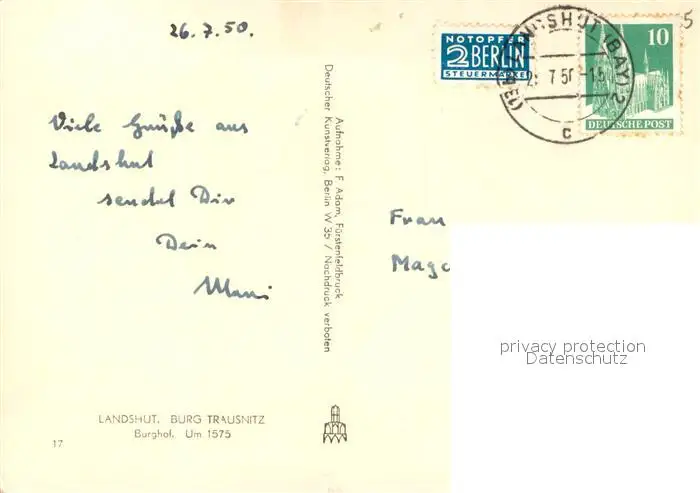 26.7.50.
Viele Grüße aus
Landshut
sendet Dir
Dein
NOTOPFER
2 BERLIN
STEUERMARKE
LANDSHUT (BAY) 2
7 50
c
10
DEUTSCHE POST
5
Aufnahme: F. Adam, Fürstenfeldbruck
Deutscher Kunstverlag, Berlin W 35 / Nachdruck verboten
Frau
privacy protection
Datenschutz
LANDSHUT. BURG TRAUSNITZ
Burghof. Um 1575
17